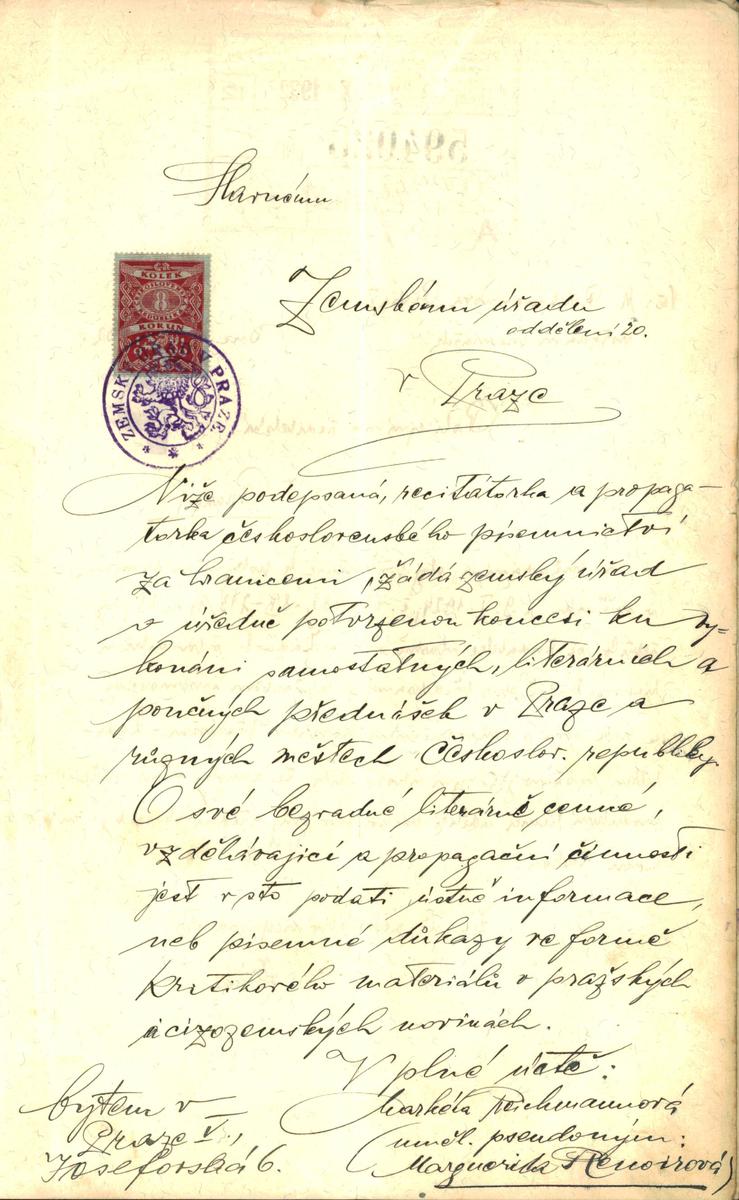 Slavnému
KOLEK
8
KORUN
ZEMSKÝ ÚŘAD V PRAZE
Zemskému úřadu
oddělení 20.
v Praze
Níže podepsaná, recitátorka a propaga-
torka československého písemnictví
za hranicemi, žádá zemský úřad
o úředně potvrzenou koncesi ku vy-
konání samostatných, literárních a
poučných přednášek v Praze a
různých městech Českoslov. republiky
O své bezvadné literárně cenné,
vzdělávající a propagační činnosti
jest v sto podati ústně informace,
neb písemné důkazy ve formě
kritikového materiálu v pražských
i cizozemských novinách.
V plné úctě:
Markéta Reichmannová
(uměl. pseudoným:
Marguerita Renoirová)
bytem v
Praze V.,
Josefovská 6.